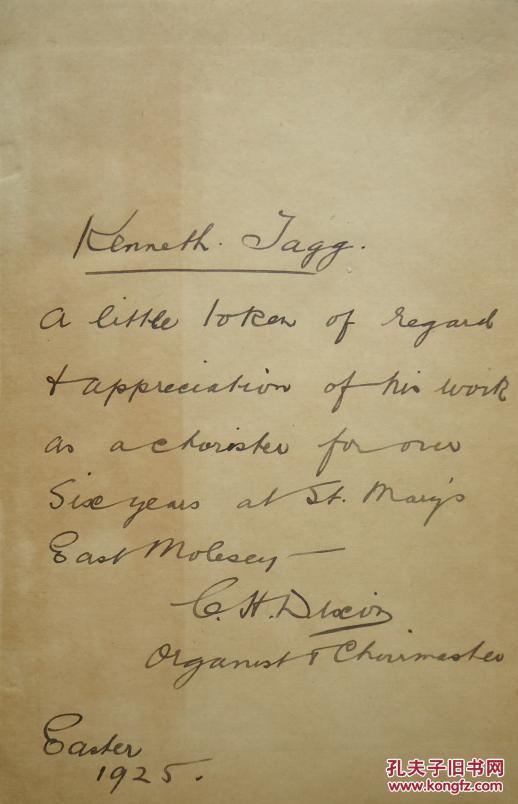 Kenneth. Tagg.
A little token of regard
& appreciation of his work
as a chorister for over
Six years at St. Mary's
East Molesey —
C. H. Dixon
Organist & Choirmaster
Easter
1925.
孔夫子旧书网
www.kongfz.com